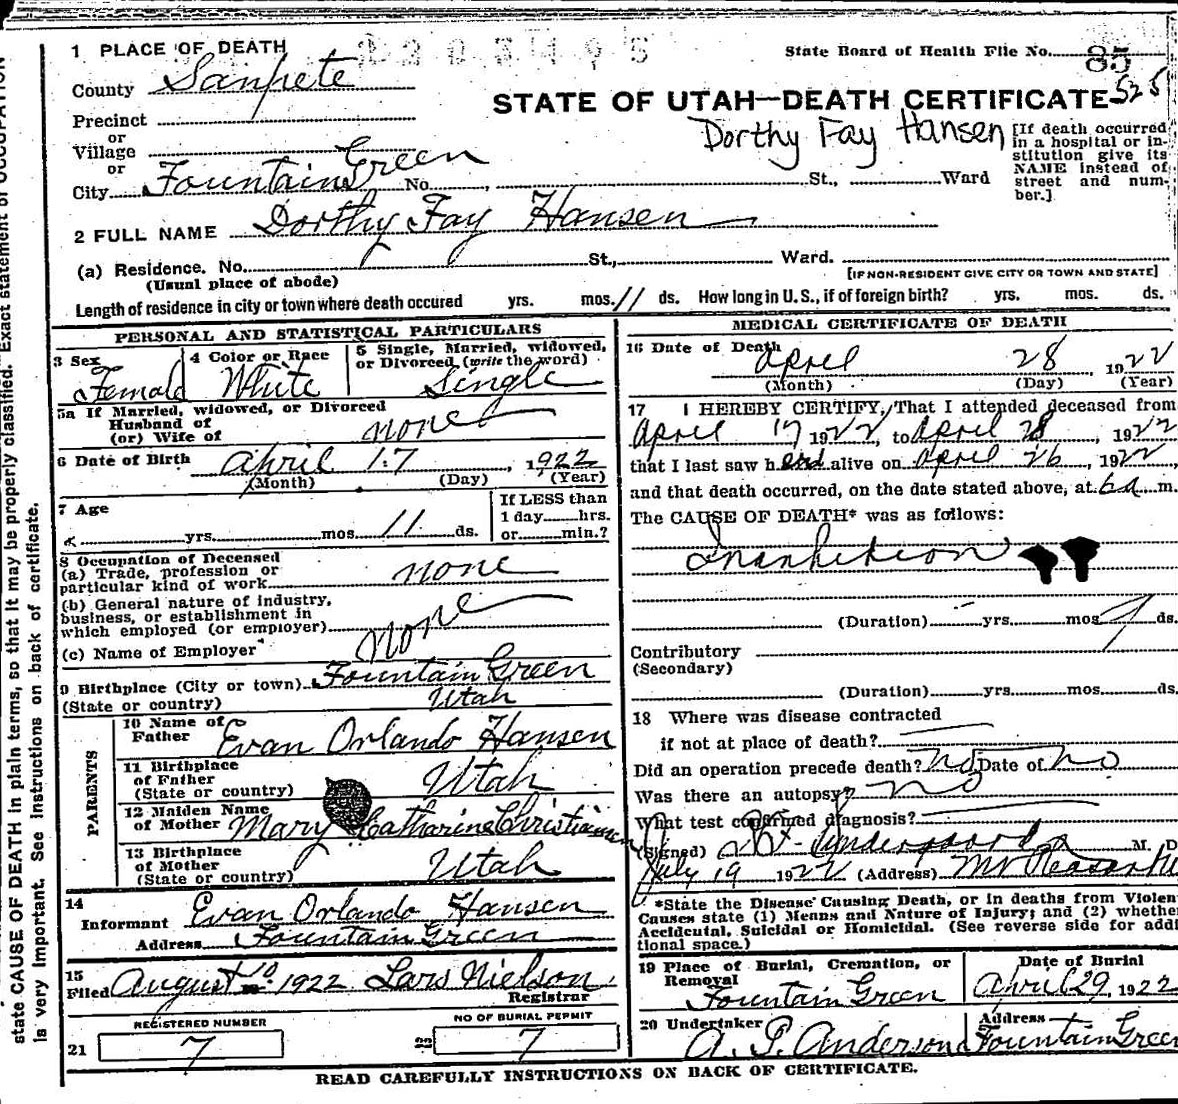 state CAUSE OF DEATH in plain terms, so that it may be properly classified. Exact statement of OCCUPATION
is very important. See instructions on back of certificate.
1 PLACE OF DEATH
State Board of Health File No. 85
525
County Sanpete
STATE OF UTAH—DEATH CERTIFICATE
Dorthy Fay Hansen
Precinct
or
Village
or
City Fountain Green No. , St., Ward
[If death occurred
in a hospital or in-
stitution give its
NAME instead of
street and num-
ber.]
2 FULL NAME Dorthy Fay Hansen
(a) Residence. No. St., Ward.
(Usual place of abode)
[IF NON-RESIDENT GIVE CITY OR TOWN AND STATE]
Length of residence in city or town where death occured yrs. mos. 11 ds. How long in U. S., if of foreign birth? yrs. mos. ds.
PERSONAL AND STATISTICAL PARTICULARS
3 Sex
Female
4 Color or Race
White
5 Single, Married, widowed,
or Divorced (write the word)
Single
5a If Married, widowed, or Divorced
Husband of
(or) Wife of none
6 Date of Birth April 17, 1922
(Month) (Day) (Year)
7 Age
yrs. mos. 11 ds.
If LESS than
1 day hrs.
or min.?
8 Occupation of Deceased
(a) Trade, profession or
particular kind of work none
(b) General nature of industry,
business, or establishment in
which employed (or employer) none
(c) Name of Employer
9 Birthplace (City or town) Fountain Green
(State or country) Utah
PARENTS
10 Name of
Father Evan Orlando Hansen
11 Birthplace
of Father
(State or country) Utah
12 Maiden Name
of Mother Mary Catharine Christiansen
13 Birthplace
of Mother
(State or country) Utah
14
Informant Evan Orlando Hansen
Address Fountain Green
15
Filed August 10 1922 Lars Nielson
Registrar
REGISTERED NUMBER
21 7
NO OF BURIAL PERMIT
22 7
MEDICAL CERTIFICATE OF DEATH
16 Date of Death
April 28, 1922
(Month) (Day) (Year)
17 I HEREBY CERTIFY, That I attended deceased from
April 17 1922, to April 28, 1922
that I last saw her alive on April 26, 1922,
and that death occurred, on the date stated above, at 6a m.
The CAUSE OF DEATH* was as follows:
Inanition
(Duration) yrs. mos. 9 ds.
Contributory
(Secondary)
(Duration) yrs. mos. ds.
18 Where was disease contracted
if not at place of death?
Did an operation precede death? no Date of no
Was there an autopsy? no
What test confirmed diagnosis?
(Signed) M. D
July 19 1922 (Address) Mt Pleasant
*State the Disease Causing Death, or in deaths from Violent
Causes state (1) Means and Nature of Injury; and (2) whether
Accidental, Suicidal or Homicidal. (See reverse side for addi
tional space.)
19 Place of Burial, Cremation, or
Removal
Fountain Green
Date of Burial
April 29, 1922
20 Undertaker
A. P. Anderson
Address
Fountain Green
READ CAREFULLY INSTRUCTIONS ON BACK OF CERTIFICATE.